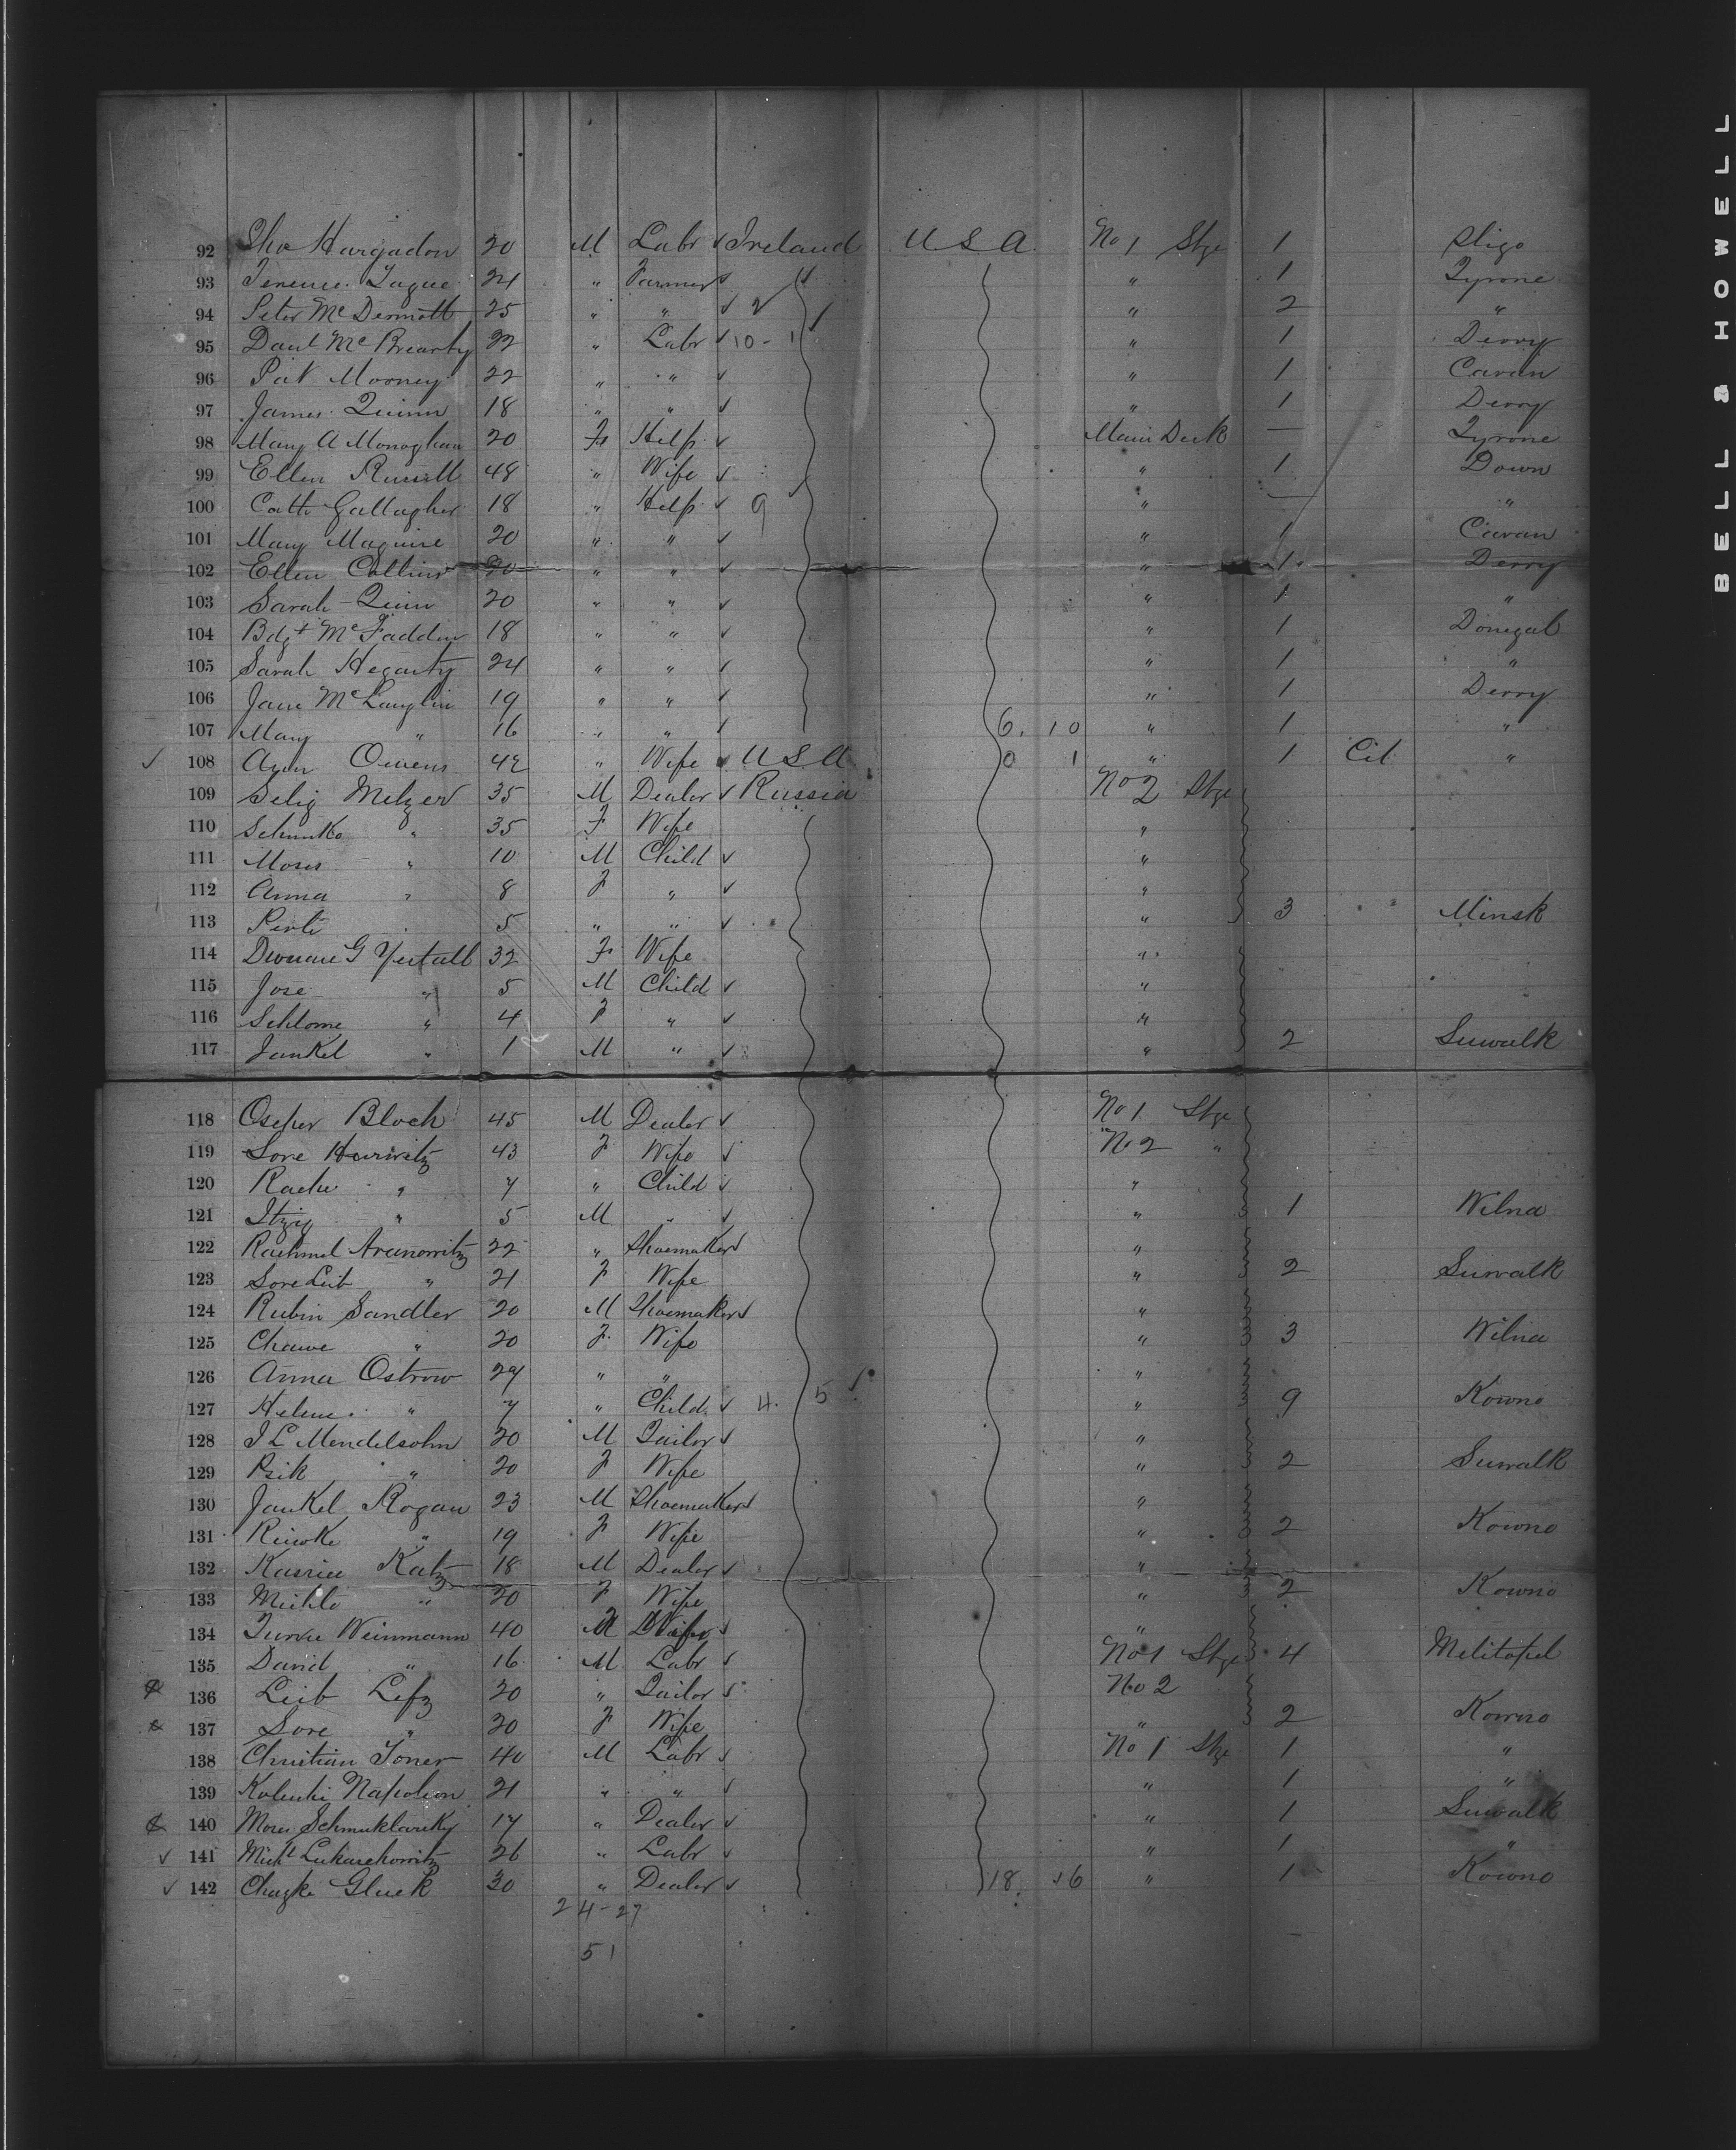 92 Tho Hargadon 20 M Labr ✓ Ireland U S A No 1 Stge 1 Sligo
93 Terence Tague 24 " Farmer ✓ " 1 Tyrone
94 Peter McDermott 25 " " ✓ 2 ✓ " 2 "
95 Danl McBrearty 22 " Labr ✓ 10 - 1 " 1 Derry
96 Pat Mooney 22 " " ✓ " 1 Cavan
97 James Quinn 18 " " ✓ " 1 Derry
98 Mary A Monoghan 20 F Help ✓ Main Deck — Tyrone
99 Ellen Russell 48 " Wife ✓ " 1 Down
100 Cath Gallagher 18 " Help ✓ 9 " — "
101 Mary Maguire 20 " " ✓ " 1 Cavan
102 Ellen Collins 20 " " ✓ " 1 Derry
103 Sarah Quin 20 " " ✓ " 1 "
104 Bdgt McFaddin 18 " " ✓ " 1 Donegal
105 Sarah Hegarty 24 " " ✓ " 1 "
106 Jane McLauglin 19 " " ✓ " 1 Derry
107 Mary " 16 " " ✓ 6. 10 " 1 "
✓ 108 Ann Owens 42 " Wife ✓ U S A 0 1 " 1 Cit "
109 Selig Melzer 35 M Dealer ✓ Russia No 2 Stge
110 Schmuko " 35 F Wife "
111 Moses " 10 M Child ✓ "
112 Anna " 8 F " ✓ "
113 Perli 5 " " ✓ " 3 Minsk
114 32 F Wife "
115 Jose " 5 M Child ✓ "
116 Schlome " 4 F " ✓ "
117 Jankel " 1 M " ✓ " 2 Suwalk
118 Oscher Bloch 45 M Dealer ✓ No 1 Stge
119 Sore Hurwitz 43 F Wife ✓ No 2 "
120 Rache " 7 " Child ✓ "
121 Itzig " 5 M " ✓ " 1 Wilna
122 Rachmel Aranowitz 22 " Shoemaker ✓ "
123 Sore Leib " 21 F Wife " 2 Suwalk
124 Rubin Sandler 20 M Shoemaker ✓ "
125 Chawe " 20 F Wife " 3 Wilna
126 Anna Ostrow 29 " " "
127 Helene " 7 " Child ✓ 4. 5 ✓ " 9 Kowno
128 I L Mendelsohn 20 M Tailor ✓ "
129 Psik " 20 F Wife " 2 Suwalk
130 Jankel Rogau 23 M Shoemaker ✓ "
131 Riwke " 19 F Wife " 2 Kowno
132 Katz 18 M Dealer ✓ "
133 Michle " 20 F Wife " 2 Kowno
134 Weinmann 40 Wife ✓ "
135 David " 16 M Labr ✓ No 1 Stge 4 Melitopel
136 Leib Lefz 20 " Tailor ✓ No 2
137 Sore " 20 F Wife " 2 Kowno
138 Christian Toner 40 M Labr ✓ No 1 Stge 1 "
139 Napoleon 21 " " ✓ " 1 "
140 Moses Schmuklarsky 17 " Dealer ✓ " 1 Suwalk
✓ 141 Michl Lukaschowitz 26 " Labr ✓ " 1 "
✓ 142 Chazke Gluck 30 " Dealer ✓ 18. 16 " 1 Kowno
24-27
51
BELL & HOWELL